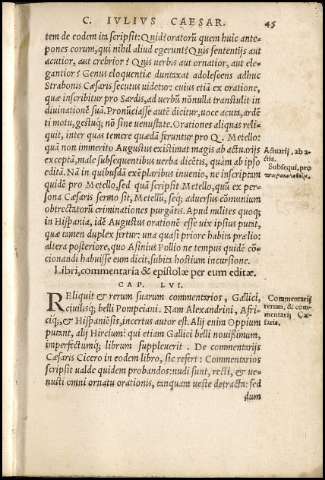 C. IVLIVS CAESAR. 45
tem de eodem ita scripsit: Quid? oratorū quem huic ante-
pones eorum, qui nihil aliud egerunt? Quis sententijs aut
acutior, aut crebrior? Quis uerbis aut ornatior, aut ele-
gantior? Genus eloquentiæ duntaxat adolescens adhuc
Strabonis Cæsaris secutus uidetur: cuius etiā ex oratione,
quæ inscribitur pro Sardis, ad uerbū nōnulla transtulit in
diuinationē suā. Pronūciasse autē dicitur, uoce acuta, ardē
ti motu, gestuq́; nō sine uenustate. Orationes aliquas reli-
quit, inter quas temere quædā feruntur pro Q. Metello:
quā non immerito Augustus existimat magis ab actuarijs
exceptā, male subsequentibus uerba dicētis, quàm ab ipso
editā. Nā in quibusdā exēplaribus inuenio, ne inscriptam
quidē pro Metello, sed quā scripsit Metello, quū ex per-
sona Cæsaris sermo sit, Metellū, seq́; aduersus communium
obtrectatorū criminationes purgātis. Apud milites quoq;
in Hispania, idē Augustus orationē esse uix ipsius putat,
quæ tamen duplex fertur: una quasi priore habita prælio:
altera posteriore, quo Asinius Pollio ne tempus quidē cō-
cionandi habuisse eum dicit, subita hostium incursione.
Actuarij, ab a-
ctis.
Subsequi, pro
Libri, commentaria & epistolæ per eum editæ.
CAP. LVI.
REliquit & rerum suarum commentarios, Gallici,
ciuilisq́; belli Pompeiani. Nam Alexandrini, Afri-
ciq́;, & Hispaniēsis, incertus autor est. Alij enim Oppium
putant, alij Hircium: qui etiam Gallici belli nouissimum,
imperfectumq́; librum suppleuerit. De commentarijs
Cæsaris Cicero in eodem libro, sic refert: Commentarios
scripsit ualde quidem probandos: nudi sunt, recti, & ue-
nusti omni ornatu orationis, tanquam ueste detracta: sed
dum
Commentarij
rerum, & com-
mentarij Cæ-
saris.